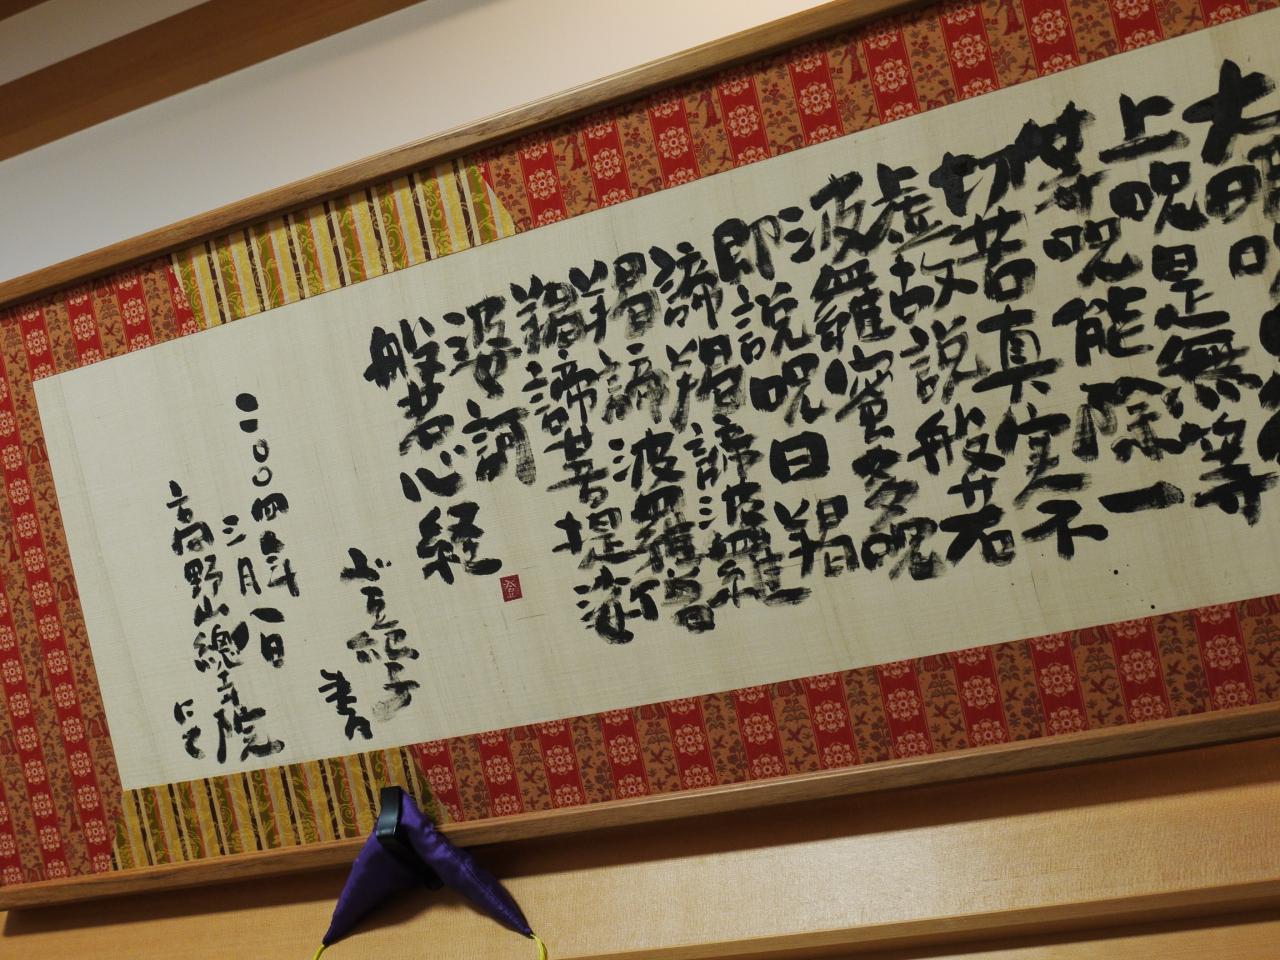 大明呪
上呪是無等
等呪能除一
切苦真実不
虚故説般若
波羅蜜多呪
即説呪曰羯
諦羯諦波羅
羯諦波羅僧
羯諦菩提薩
婆訶
般若心経
紀子 書
二〇〇四年
三月八日
高野山總持院
にて